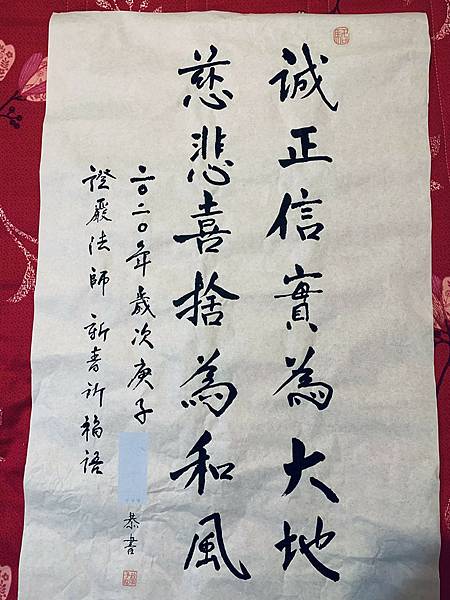 誠正信實為大地
慈悲喜捨為和風
二〇二〇年歲次庚子
恭書
證嚴法師 新春祈福語